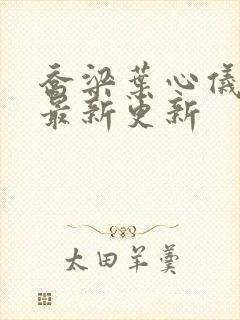 乔梁叶心仪
最新更新
太田羊羹